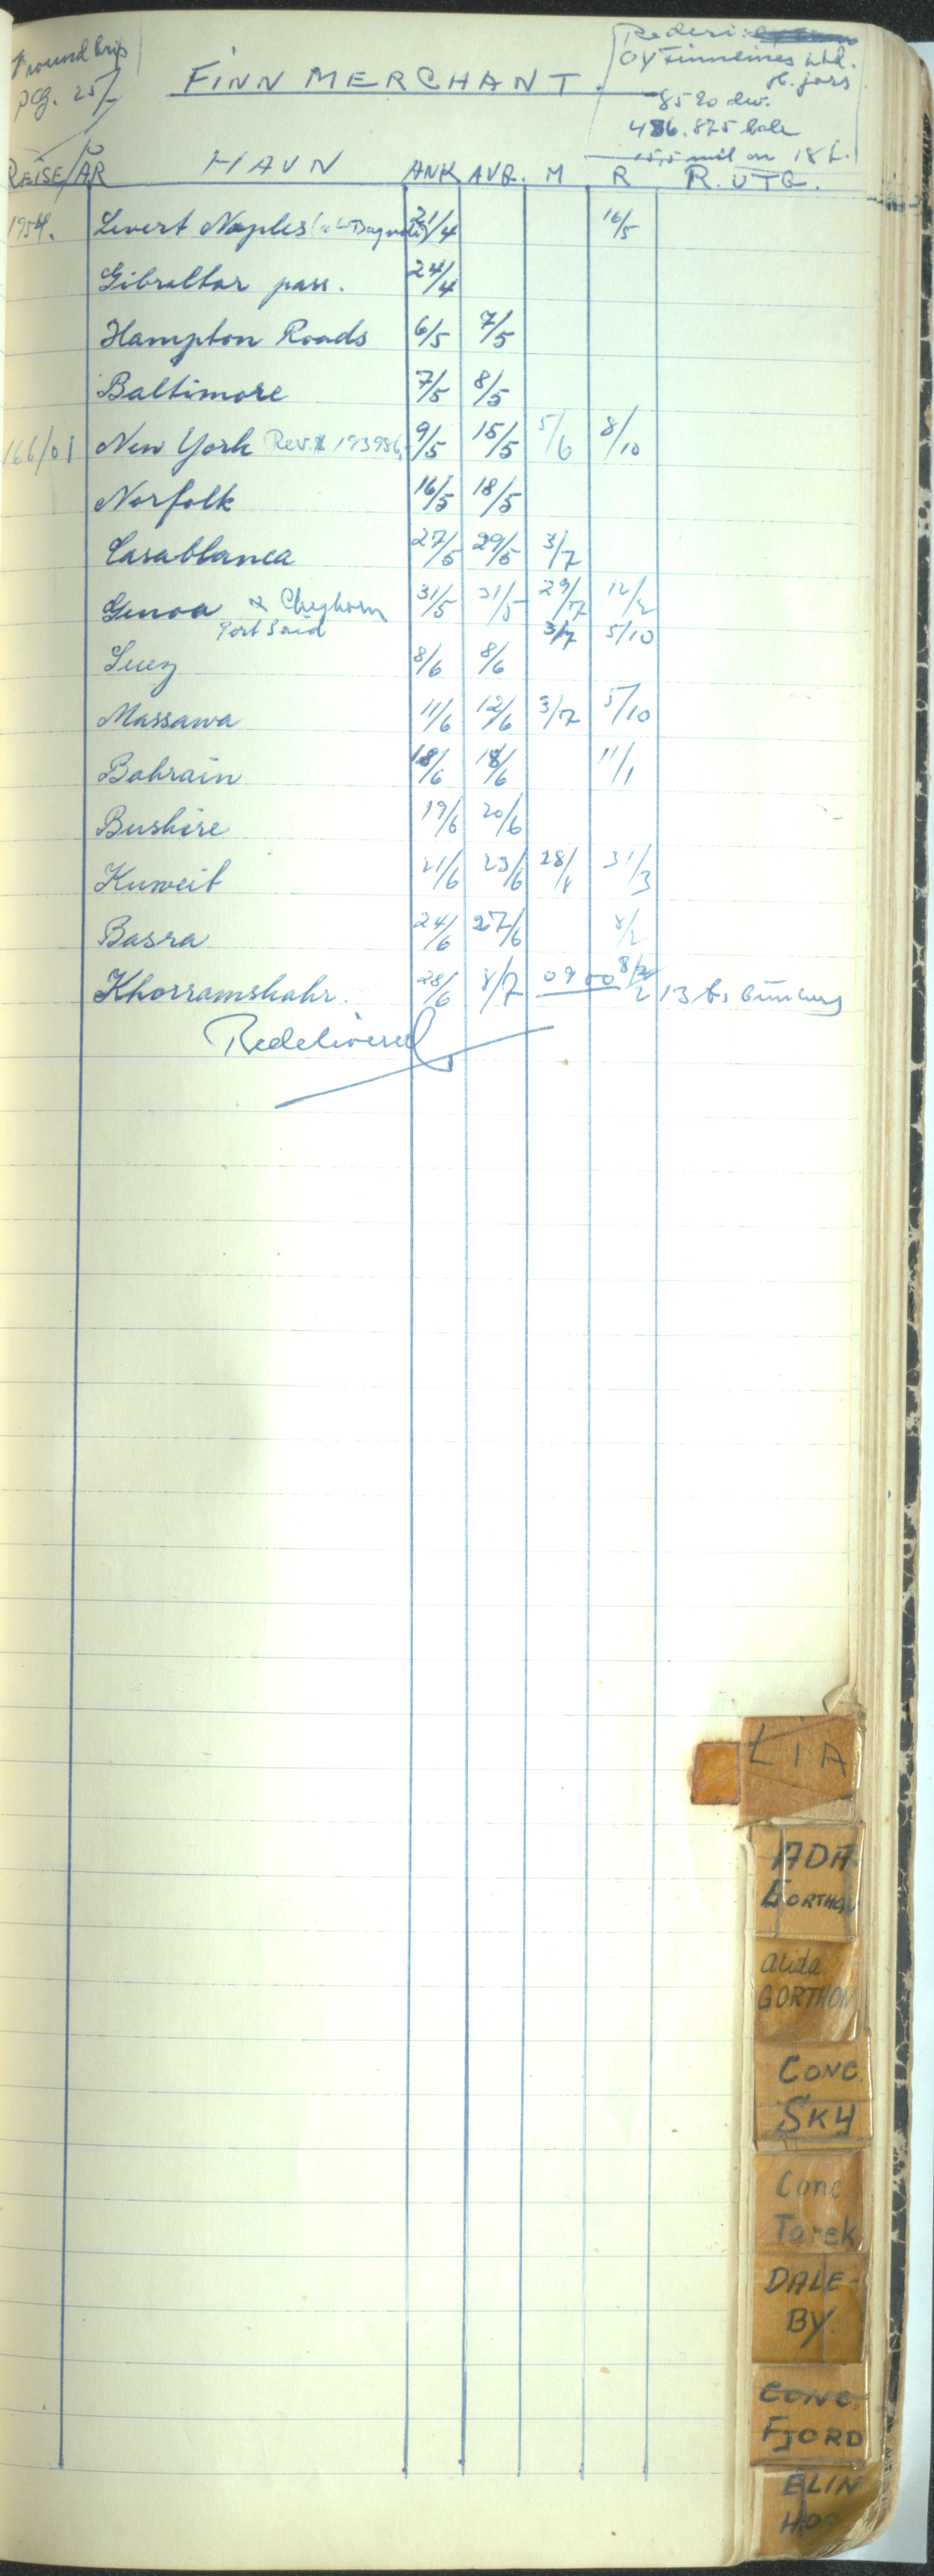 1 round trip
pag. 25/-
FINN MERCHANT
Rederi:
OY Finnlines Ltd.
8520 dw.
486.875 bale
15,5 mil on 18 t.
REISE/ÅR HAVN ANK AVG. M R R. UTG.
1954. Levert Naples 21/4 16/5
Gibraltar pass. 24/4
Hampton Roads 6/5 7/5
Baltimore 7/5 8/5
166/01 New York Rev. $ 193986, 9/5 15/5 5/6 8/10
Norfolk 16/5 18/5
Casablanca 27/5 29/5 3/7
Genoa & Leghorn 31/5 31/5 29/7 12/2
Port Said 3/7 5/10
Suez 8/6 8/6
Massawa 11/6 12/6 3/7 5/10
Bahrain 18/6 18/6 11/1
Bushire 19/6 20/6
Kuweit 21/6 23/6 28/8 31/3
Basra 24/6 27/6 8/2
Khorramshahr. 28/6 8/7 0900 8/2 13 bs bunkers
Redelivered
LIA
ADA
GORTHON
Alida
GORTHON
CONC
SKY
Conc
Tarek
DALE-
BY.
CONC.
FJORD
ELIN